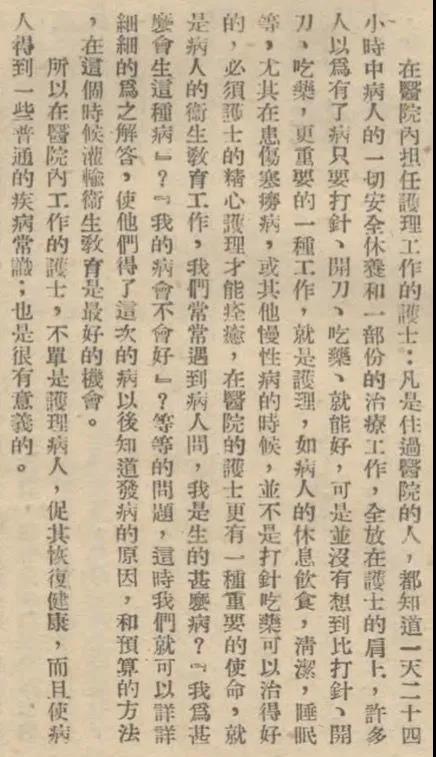 在醫院內担任護理工作的護士：凡是住過醫院的人，都知道一天二十四
小時中病人的一切安全休養和一部份的治療工作，全放在護士的肩上，許多
人以爲有了病只要打針、開刀、吃藥、就能好，可是並沒有想到比打針、開
刀、吃藥，更重要的一種工作，就是護理，如病人的休息飲食，淸潔，睡眠
等，尤其在患傷寒癆病，或其他慢性病的時候，並不是打針吃藥可以治得好
的，必須護士的精心護理才能痊癒，在醫院的護士更有一種重要的使命，就
是病人的衞生敎育工作，我們常常遇到病人問，我是生的甚麼病？『我爲甚
麼會生這種病』？『我的病會不會好』？等等的問題，這時我們就可以詳詳
細細的爲之解答，使他們得了這次的病以後知道發病的原因，和預算的方法
，在這個時候灌輸衞生敎育是最好的機會。
所以在醫院內工作的護士，不單是護理病人，促其恢復健康，而且使病
人得到一些普通的疾病常識；也是很有意義的。